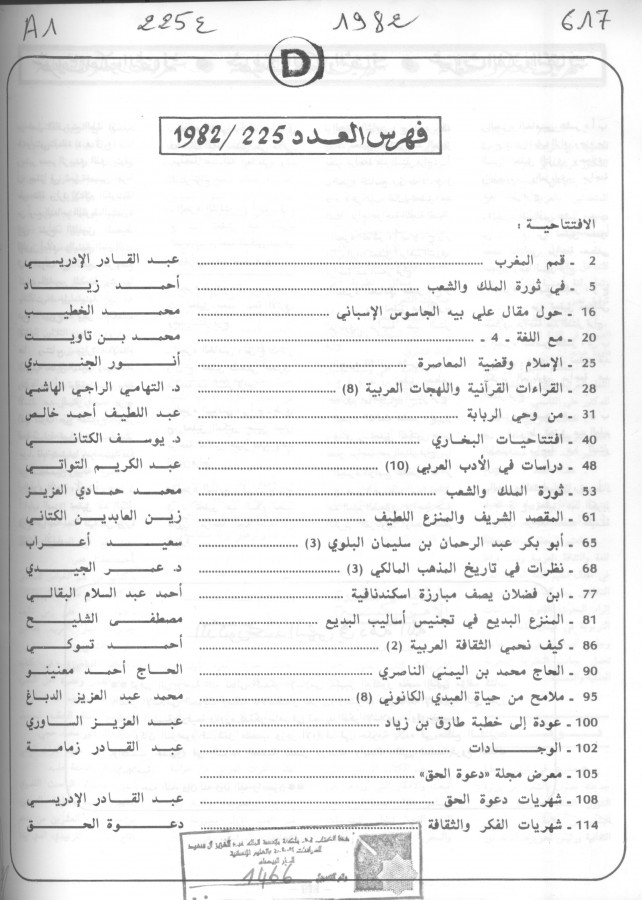 A1 225ع 1982 617
D
فهرس العدد 225/1982
الافتتاحية :
2 ـ قمم المغرب .................... عبد القادر الإدريسي
5 ـ في ثورة الملك والشعب .................... أحمد زياد
16 ـ حول مقال علي بيه الجاسوس الإسباني .................... محمد الخطيب
20 ـ مع اللغة ـ 4 ـ .................... محمد بن تاويت
25 ـ الإسلام وقضية المعاصرة .................... أنور الجندي
28 ـ القراءات القرآنية واللهجات العربية (8) .................... د. التهامي الراجي الهاشمي
31 ـ من وحي الربابة .................... عبد اللطيف أحمد خالص
40 ـ افتتاحيات البخاري .................... د. يوسف الكتاني
48 ـ دراسات في الأدب العربي (10) .................... عبد الكريم التواتي
53 ـ ثورة الملك والشعب .................... محمد حمادي العزيز
61 ـ المقصد الشريف والمنزع اللطيف .................... زين العابدين الكتاني
65 ـ أبو بكر عبد الرحمان بن سليمان البلوي (3) .................... سعيد أعراب
68 ـ نظرات في تاريخ المذهب المالكي (3) .................... د. عمر الجيدي
77 ـ ابن فضلان يصف مبارزة اسكندنافية .................... أحمد عبد السلام البقالي
81 ـ المنزع البديع في تجنيس أساليب البديع .................... مصطفى الشليح
86 ـ كيف نحمي الثقافة العربية (2) .................... أحمد تسوكي
90 ـ الحاج محمد بن اليمني الناصري .................... الحاج أحمد معنينو
95 ـ ملامح من حياة العبدي الكانوني (8) .................... محمد عبد العزيز الدباغ
100 ـ عودة إلى خطبة طارق بن زياد .................... عبد العزيز الساوري
102 ـ الوجادات .................... عبد القادر زمامة
105 ـ معرض مجلة «دعوة الحق» ....................
108 ـ شهريات دعوة الحق .................... عبد القادر الإدريسي
114 ـ شهريات الفكر والثقافة .................... دعوة الحق
1466